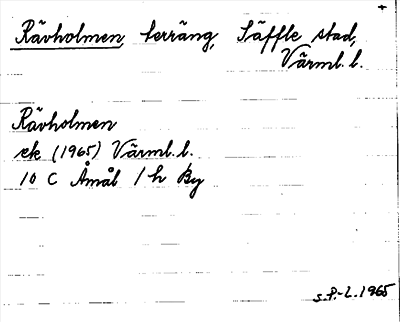 +
Rävholmen, terräng, Säffle stad,
Värml. l.
Rävholmen
ek (1965) Värml. l.
10 C Åmål 1 h By
S.P.-L. 1965